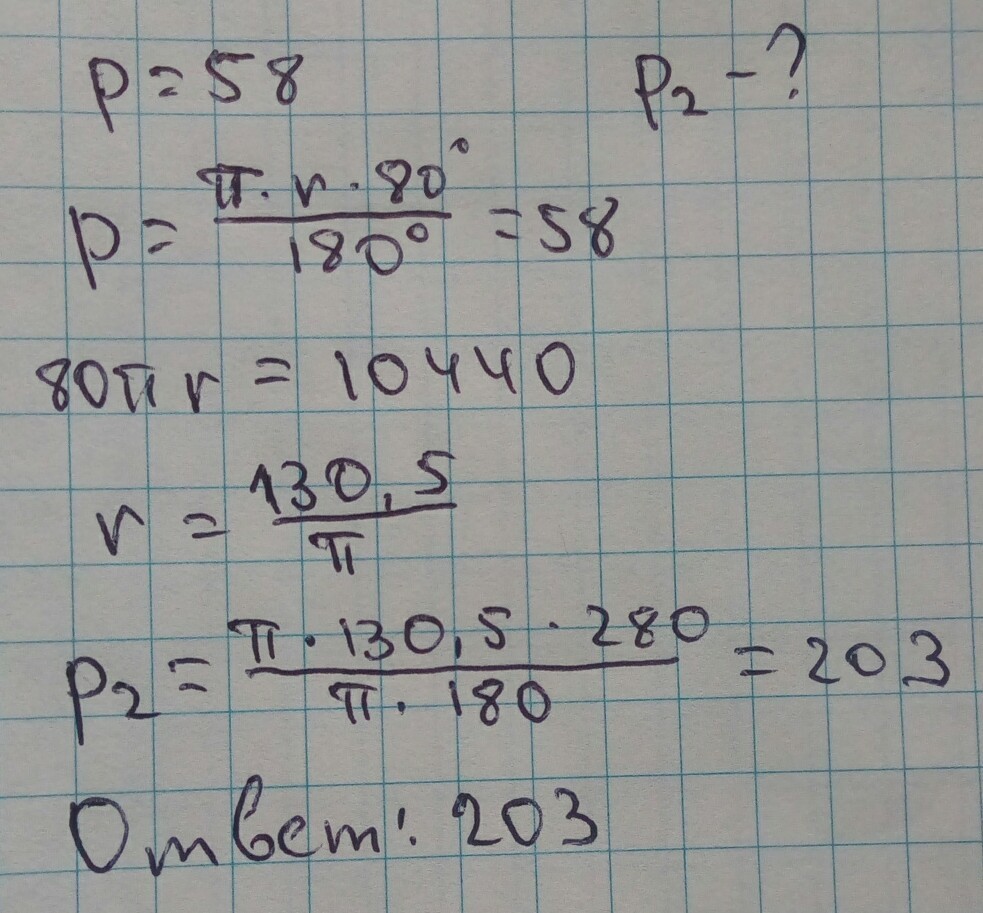 p = 58 p₂ - ?
p = π · r · 80° / 180° = 58
80πr = 10440
r = 130,5 / π
p₂ = π · 130,5 · 280 / π · 180 = 203
Ответ: 203